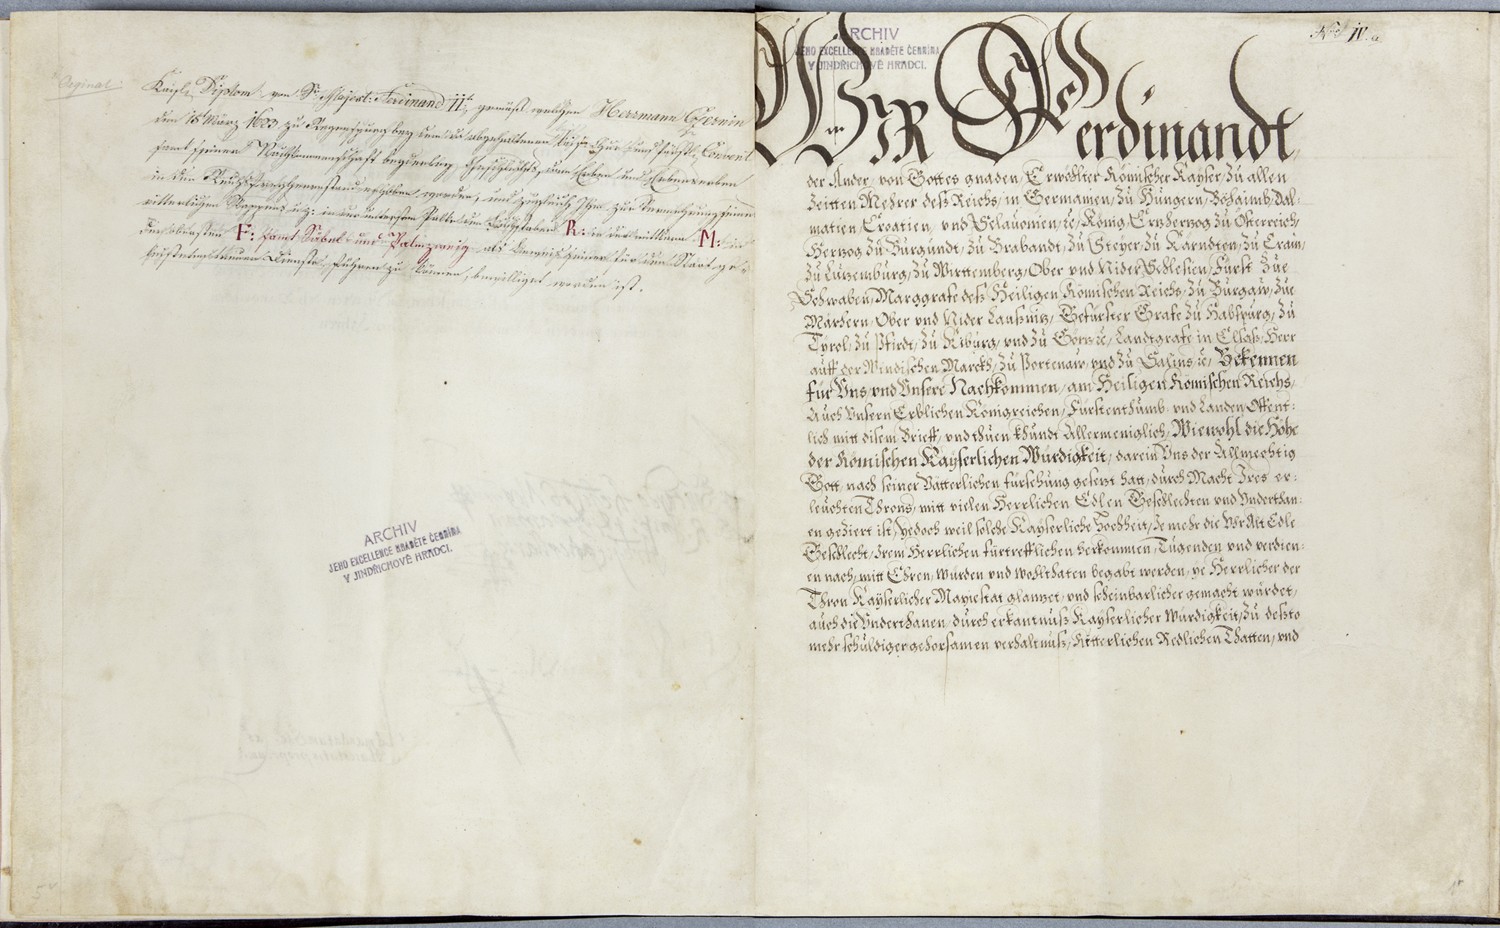 Original
Kaisl. Diplom von Sr. Majest. Ferdinand IIt. gemäß welchen Herrmann Czernin
den 18 März 1623 zu Regensburg bey dem da abgehaltenen Kaiser Chur und Fürstl. Convent
samt seiner Nachkommenschaft beyderley Geschlechts, dann Erben und Erbenserben
in den Reichsgrafenstand erhoben worden, und zugleich Ihm zur Vermehrung seines
ritterlichen Wappens in der untersten den Buchstaben R: in der mittern M: in
der obersten F: samt Säbel und Palmzweig als seiner für den Staat
Dienste, führen zu können, bewilliget worden ist.
ARCHIV
JEHO EXCELLENCE HRABĚTE ČERNÍNA
V JINDŘICHOVĚ HRADCI.
5v
ARCHIV
JEHO EXCELLENCE HRABĚTE ČERNÍNA
V JINDŘICHOVĚ HRADCI.
No. IV. a
WIR Ferdinandt,
der Ander, von Gottes gnaden, Erwöhlter Römischer Kayser, zu allen
Zeitten Mehrer deß Reichs, in Germanien, zu Hungern, Böhaimb, Dal-
matien, Croatien, vnd Sclauonien, ec, König, Ertzhertzog zu Österreich,
Hertzog zu Burgundt, zu Brabandt, zu Steyer, zu Kärndten, zu Crain,
zu Lützemburg, zu Württemberg, Ober vnd Nider Schlesien, Fürst zue
Schwaben, Marggrafe deß Heiligen Römischen Reichs, zu Burgaw, zue
Märhern, Ober vnd Nider Laußnitz, Gefürster Grafe zu Habspurg, zu
Tyrol, zu Pfirdt, zu Kiburg, vnd zu Görtz ec, Landtgrafe in Elsaß, Herr
auff der Windischen Marckh, zu Portenaw, vnd zu Salins ec, Bekennen
für Vns, vnd Vnsere Nachkommen, am Heiligen Römischen Reichs,
Auch Vnsern Erblichen Königreichen, Fürstenthumb, vnd Landen, Offent-
lich mitt disem Brieff, vnd thuen khundt Allermeniglich, Wiewohl die Höhe
der Römischen Kayserlichen Würdigkeit, darein Vns der Allmechtig
Gott, nach seiner Vatterlichen fürsehung gesetzt hatt, durch Macht Ires er-
leuchten Throns, mitt vielen Herrlichen Edlen Geschlechten vnd Vnderthan-
en geziert ist, Yedoch weil solche Kayserliche Hochheit, Je mehr die Vr Alt Edle
Geschlecht, Irem Herrlichen fürtrefflichen herkommen, Tugenden vnd verdien-
en nach, mitt Ehren, würden vnd wohlthaten begabt werden, ye Herrlicher der
Thron Kayserlicher Mayestat glantzet, vnd scheinbarlicher gemacht würdet,
auch die Vnderthanen, durch erkantnuß Kayserlicher Würdigkeit, zu deßto
mehr schuldiger gehorsamen verhaltnuß, Ritterlichen Redlichen Thatten, vnd
1r